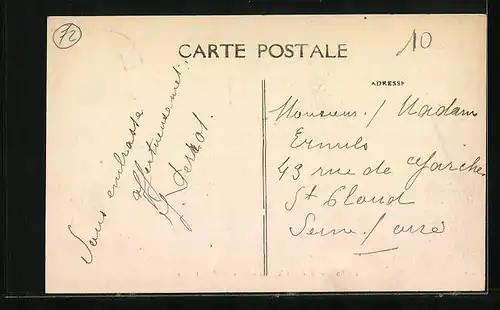 72
CARTE POSTALE
10
ADRESSE
Monsieur / Madam
Ermils
43 rue de Garches
St Cloud
Seine / oise
Vous embrasse
affectueusement